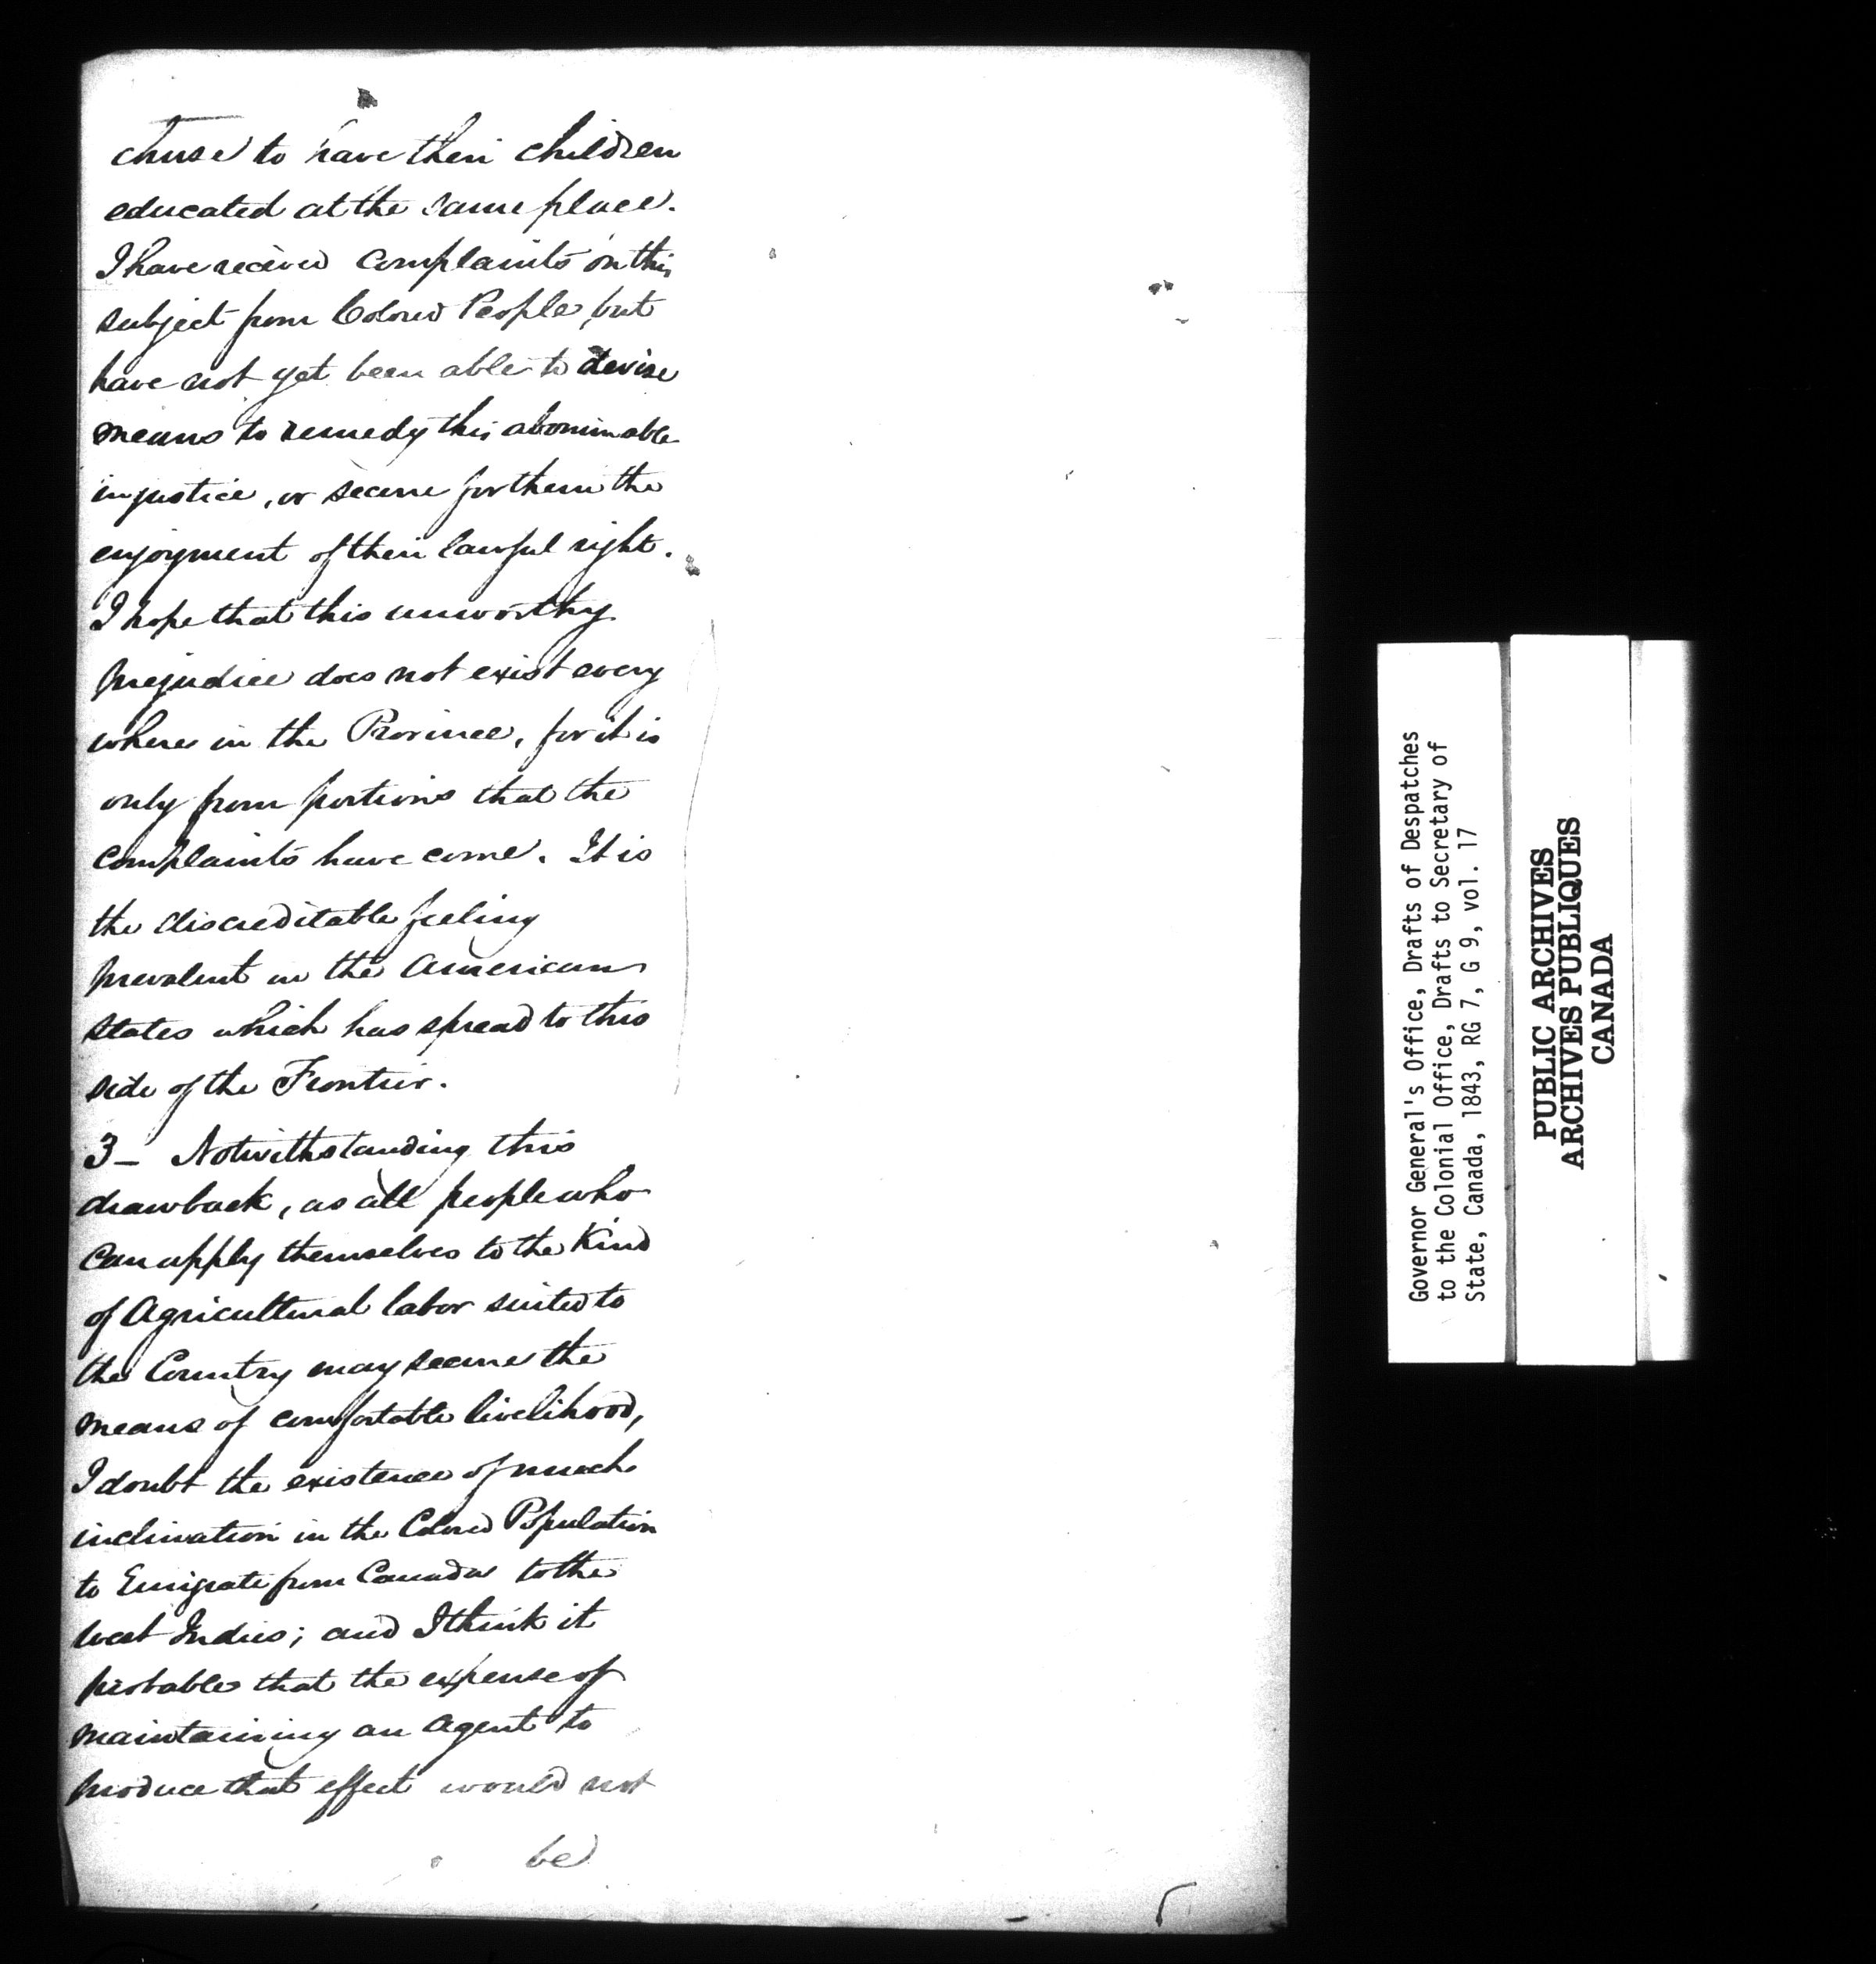 chuse to have their children
educated at the same place.
I have recieved complaints on this
subject from Colored People, but
have not yet been able to devise
means to remedy this abominable
injustice, or secure for them the
enjoyment of their lawful right.
I hope that this unworthy
prejudice does not exist every
where in the Province, for it is
only from portions that the
complaints have come. It is
the discreditable feeling
prevalent in the American
States which has spread to this
side of the Frontier.
3- Notwithstanding this
drawback, as all people who
can apply themselves to the Kind
of Agricultural labor suited to
the Country may secure the
means of comfortable livelihood,
I doubt the existence of much
inclination in the Colored Population
to Emigrate from Canada to the
West Indies; and I think it
probable that the expense of
maintaining an Agent to
produce that effect would not
be
Governor General's Office, Drafts of Despatches
to the Colonial Office, Drafts to Secretary of
State, Canada, 1843, RG 7, G 9, vol. 17
PUBLIC ARCHIVES
ARCHIVES PUBLIQUES
CANADA